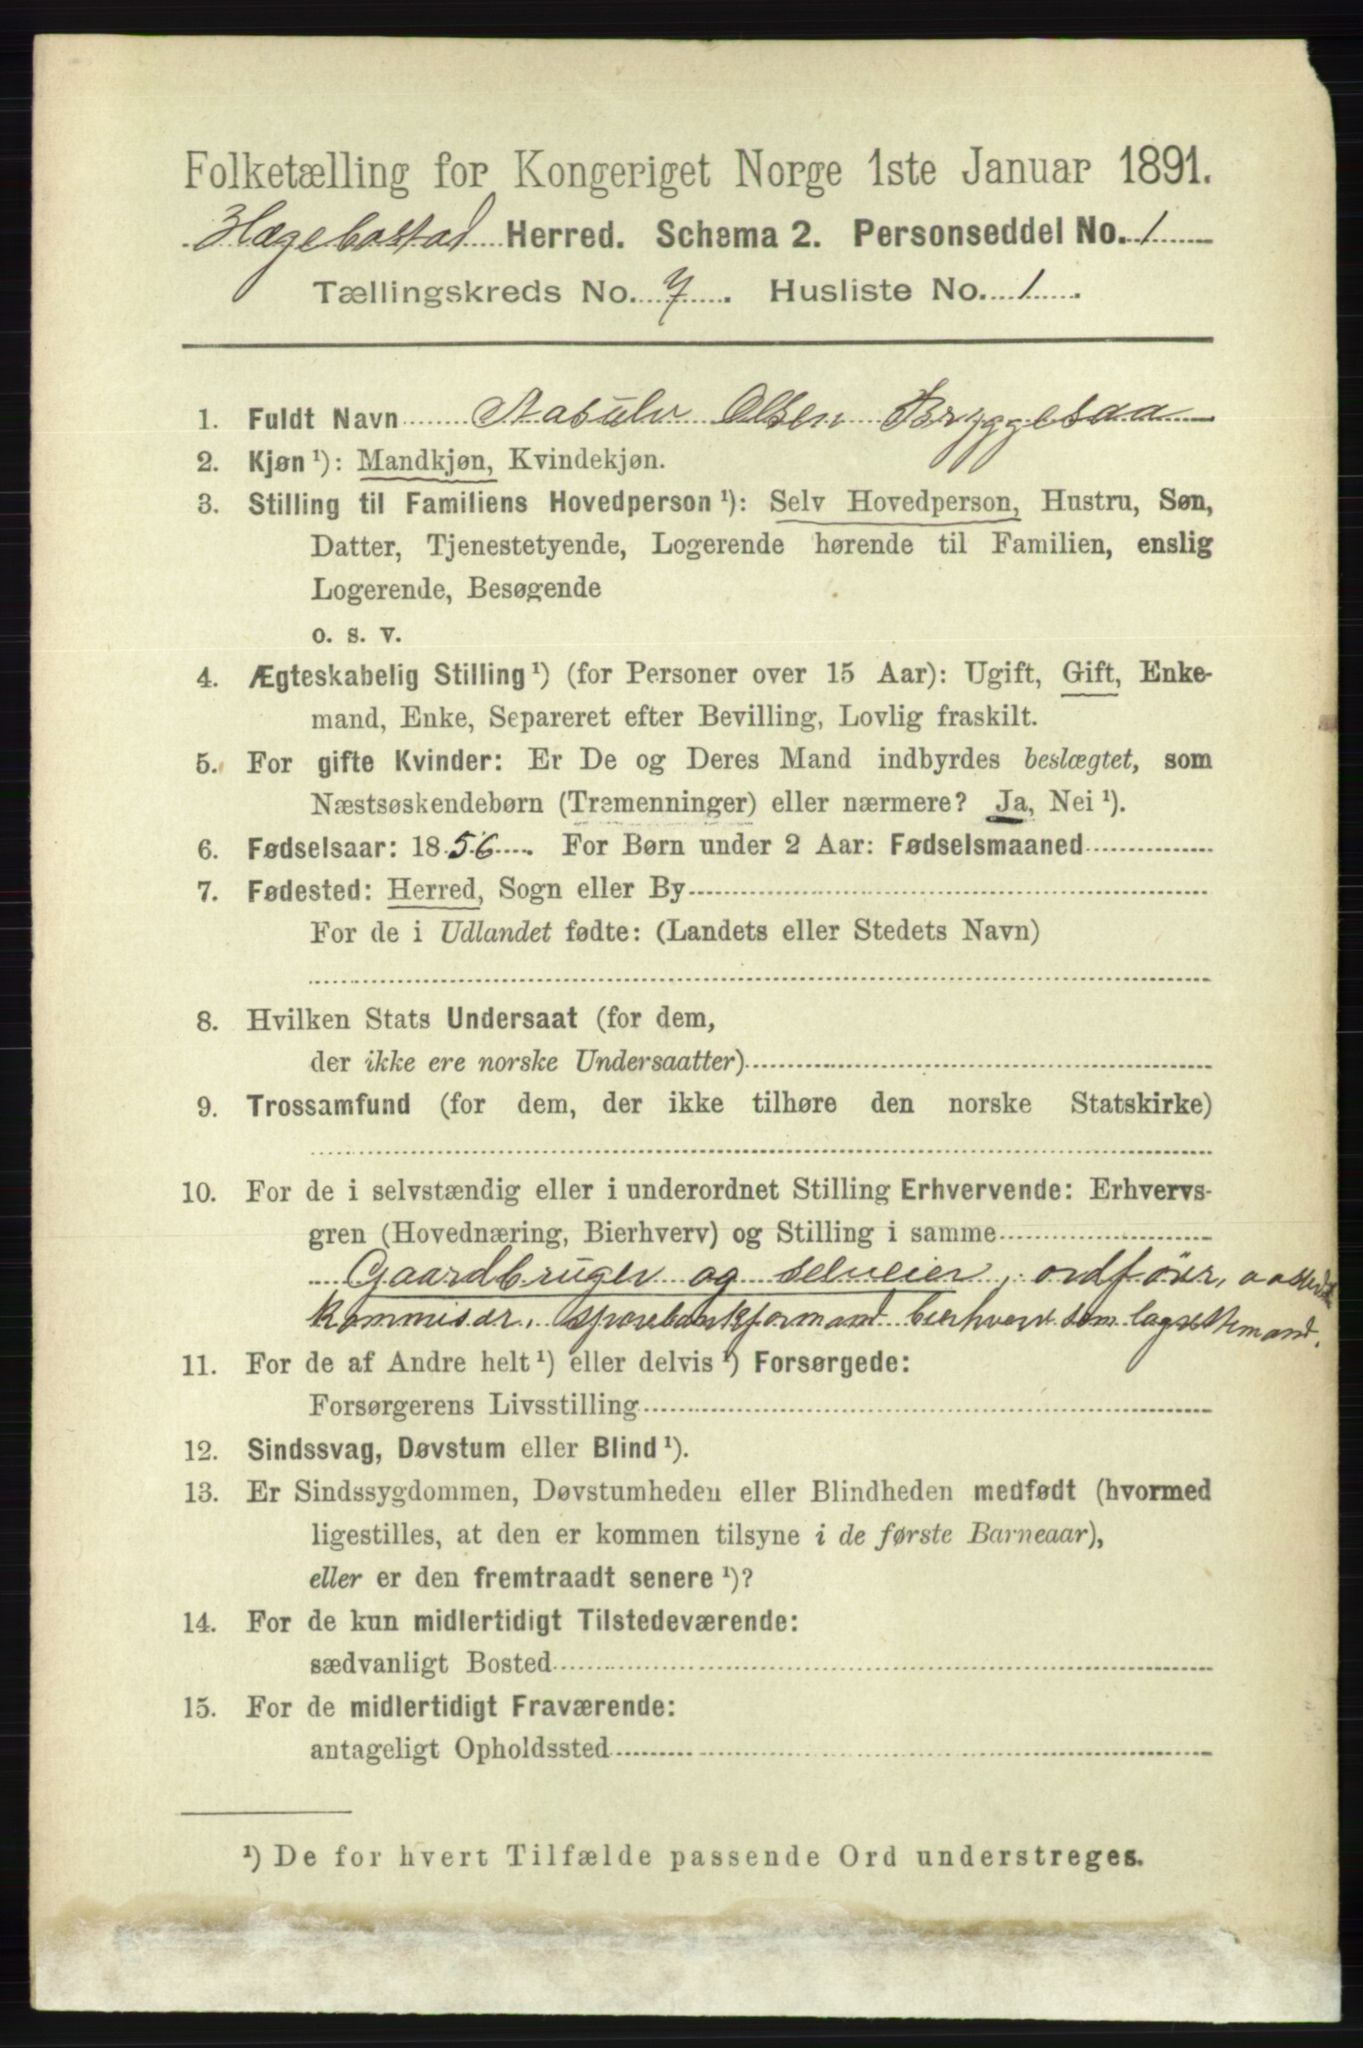 Folketælling for Kongeriget Norge 1ste Januar 1891.
Hægebostad Herred. Schema 2. Personseddel No. 1
Tællingskreds No. 7. Husliste No. 1.
1. Fuldt Navn Aasulv Olsen Bryggesaa
2. Kjøn ¹): Mandkjøn, Kvindekjøn.
3. Stilling til Familiens Hovedperson ¹): Selv Hovedperson, Hustru, Søn,
Datter, Tjenestetyende, Logerende hørende til Familien, enslig
Logerende, Besøgende
o. s. v.
4. Ægteskabelig Stilling ¹) (for Personer over 15 Aar): Ugift, Gift, Enke-
mand, Enke, Separeret efter Bevilling, Lovlig fraskilt.
5. For gifte Kvinder: Er De og Deres Mand indbyrdes beslægtet, som
Næstsøskendebørn (Tremenninger) eller nærmere? Ja, Nei ¹).
6. Fødselsaar: 1856. For Børn under 2 Aar: Fødselsmaaned
7. Fødested: Herred, Sogn eller By
For de i Udlandet fødte: (Landets eller Stedets Navn)
8. Hvilken Stats Undersaat (for dem,
der ikke ere norske Undersaatter)
9. Trossamfund (for dem, der ikke tilhøre den norske Statskirke)
10. For de i selvstændig eller i underordnet Stilling Erhvervende: Erhvervs-
gren (Hovednæring, Bierhverv) og Stilling i samme
Gaardbruger og selveier, ordfører,
kommisær, sparebankformand bierhverv som lagrettemand.
11. For de af Andre helt ¹) eller delvis ¹) Forsørgede:
Forsørgerens Livsstilling
12. Sindssvag, Døvstum eller Blind ¹).
13. Er Sindssygdommen, Døvstumheden eller Blindheden medfødt (hvormed
ligestilles, at den er kommen tilsyne i de første Barneaar),
eller er den fremtraadt senere ¹)?
14. For de kun midlertidigt Tilstedeværende:
sædvanligt Bosted
15. For de midlertidigt Fraværende:
antageligt Opholdssted
¹) De for hvert Tilfælde passende Ord understreges.